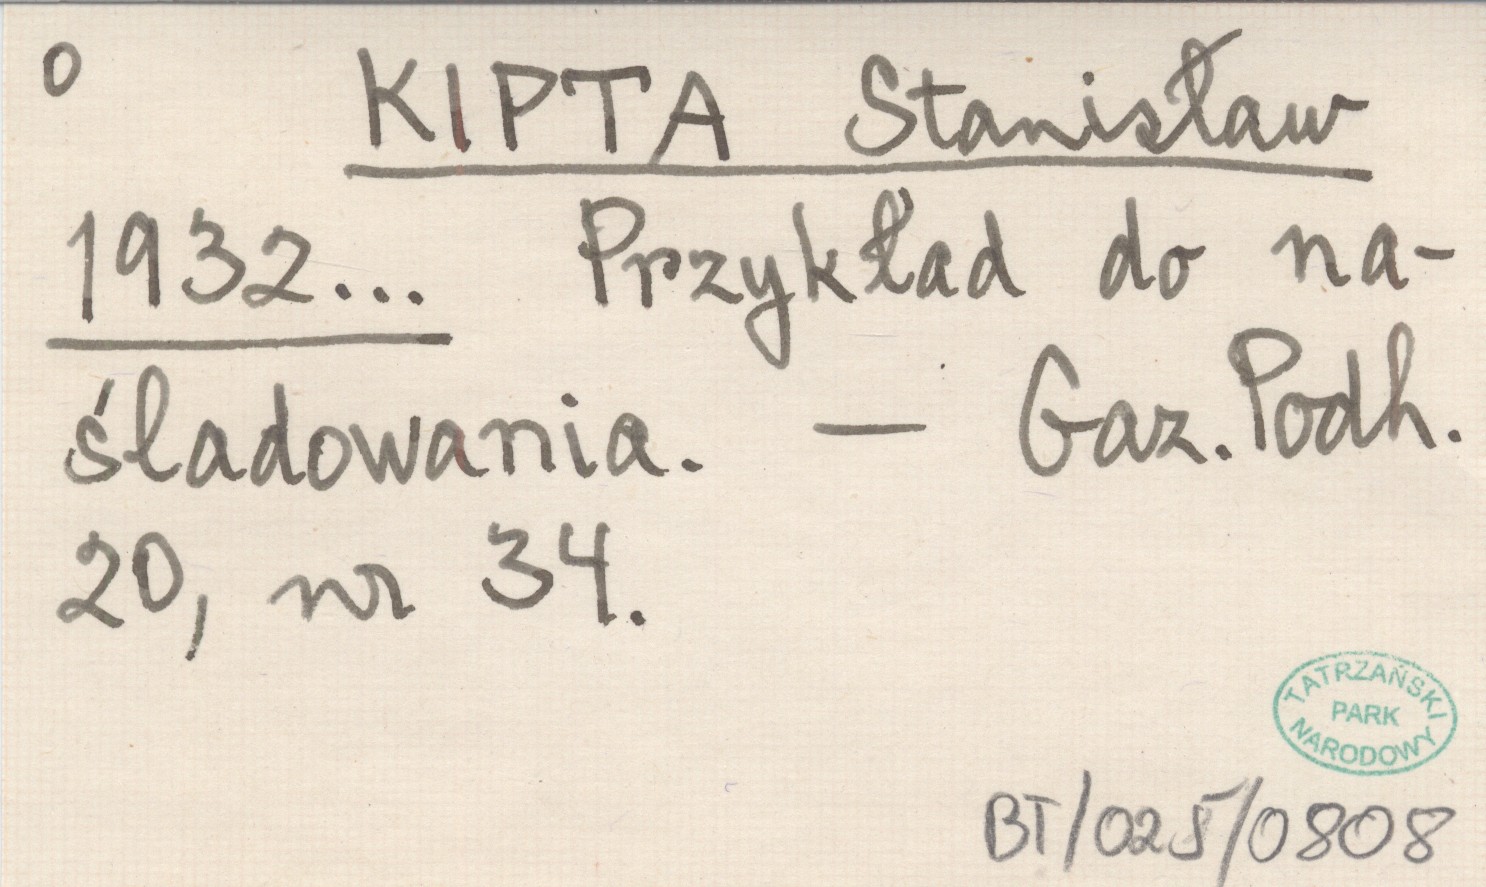 o KIPTA Stanisław
1932... Przykład do na-
śladowania. — Gaz. Podh.
20, nr 34.
TATRZAŃSKI
PARK
NARODOWY
BT/025/0808